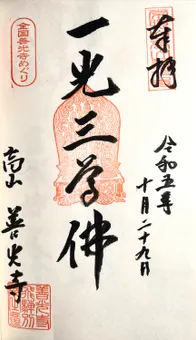 奉拝
令和五年
十月二十九日
一光三尊佛
全国善光寺めぐり
高山 善光寺